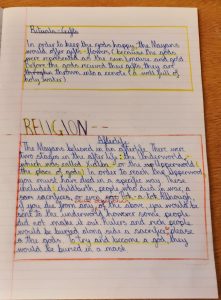 Rituals - Gifts
In order to keep the gods happy, the Mayans
would offer gifts - flowers, because the gods
were represented as the sun, maize and gold.
Before the gods receive their gifts, they are
thrown into a cenote (a well full of
holy water).
RELIGION --
Afterlife
The Mayans believed in an afterlife. There were
two stages in the afterlife: the Underworld,
which was called Xibalba or the Upperworld
(the place of gods). In order to reach the Upperworld
you must have died in a specific way. These
included: childbirth, people who died in war, a
ceremonial sacrifice, or you were not. Although,
if you die from any of the above, you would be
sent to the underworld, however some people
did not make it out. Rulers and rich people
would be buried along side a sacrifice to please
the gods. To try and become a god, they
would be buried in a mask.